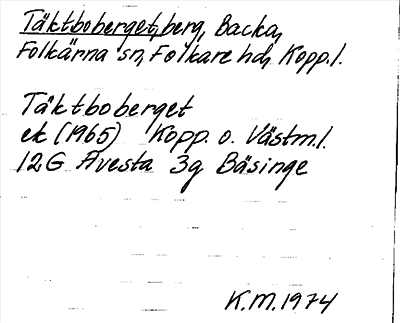 Täktboberget, berg, Backa,
Folkärna sn, Folkare hd, Kopp. l.
Täktboberget
ek (1965) Kopp. o. Västm. l.
12G Avesta 3g Bäsinge
K.M. 1974